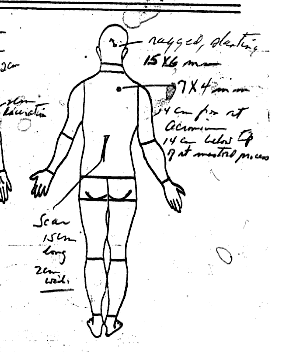 ragged, slanting
15 X 6 mm
7 X 4 mm
14 cm from rt
acromion
14 cm below tip
of rt mastoid process
Scar
15cm
long
2cm
wide
cm